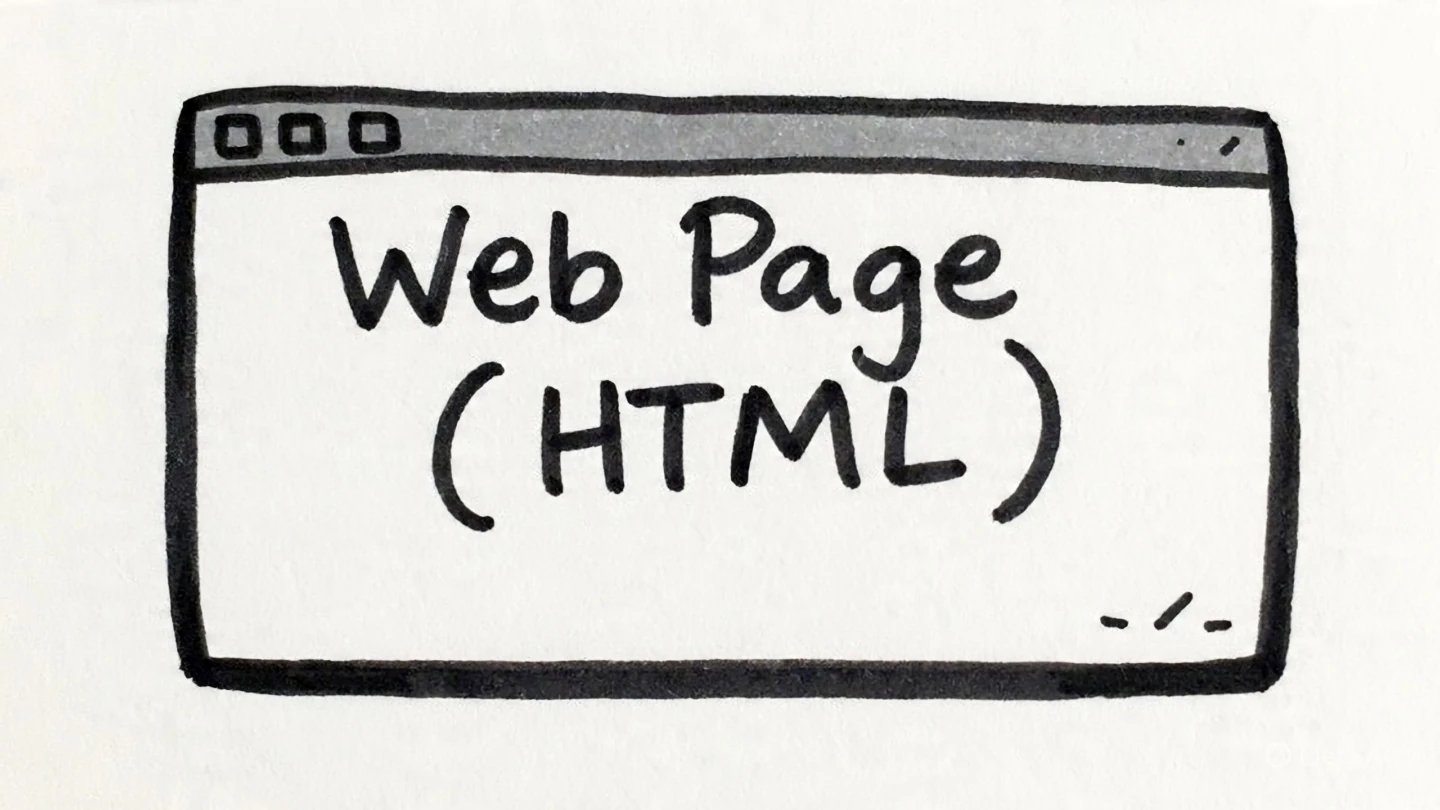 Web Page
(HTML)